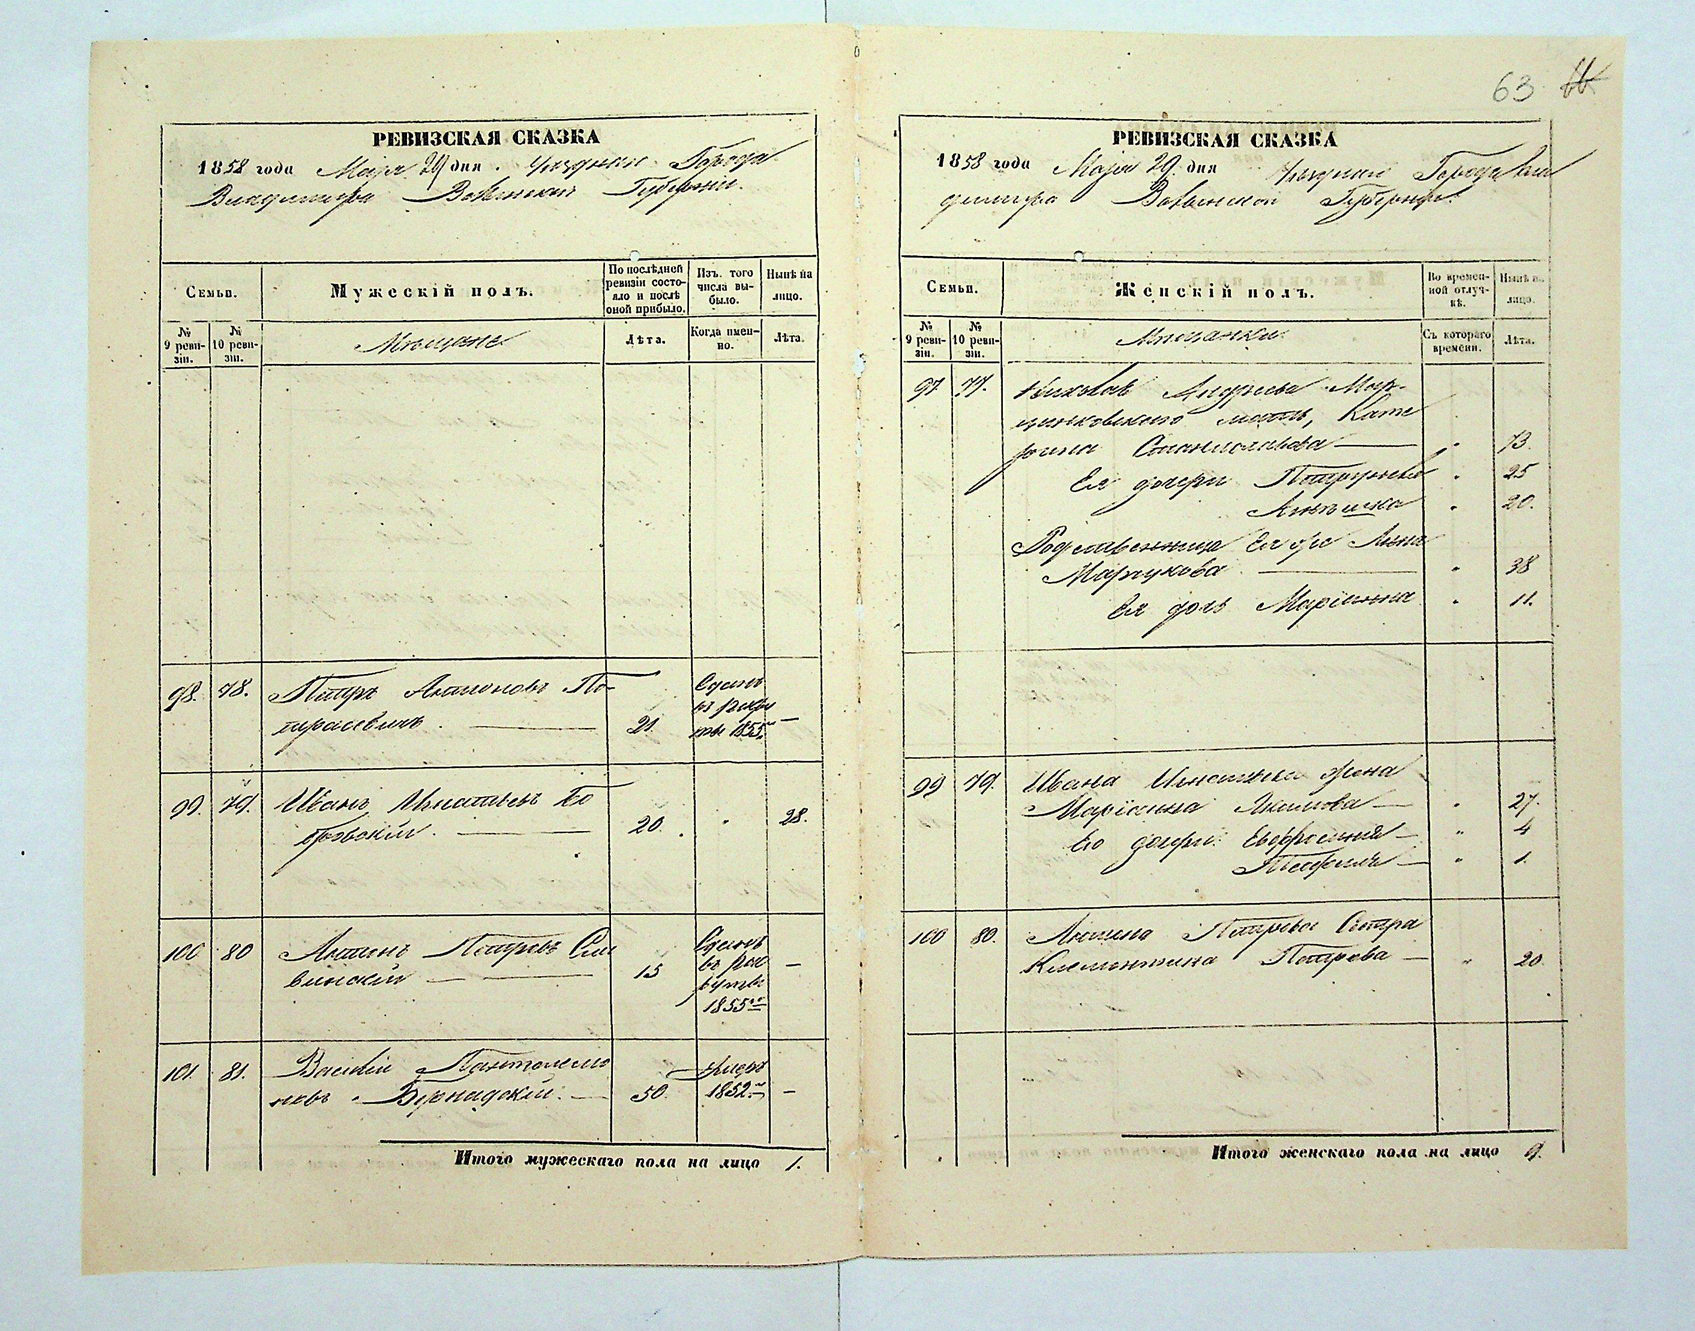 63
РЕВИЗСКАЯ СКАЗКА
1858 года Маія 29 дня. Уѣзднаго Города
Владимира Волынской Губерніи.
Семьи.
Мужескій полъ.
По послѣдней ревизіи состояло и послѣ оной прибыло.
Изъ того числа выбыло.
Нынѣ на лицо.
№ 9 ревизіи.
№ 10 ревизіи.
Мѣщане
Лѣта.
Когда именно.
Лѣта.
98. 78. Петръ Антоновъ По-
21. Сданъ въ рекруты 1855. —
99. 79. Иванъ Игнатьевъ
20. " 28.
100 80 Антонъ Петровъ Сли
винскій — 15 Сданъ въ рекруты 1855 —
101. 81. Василій Пантелемо
новъ Бернадскій. — 50. умеръ 1852. —
Итого мужескаго пола на лицо 1.
РЕВИЗСКАЯ СКАЗКА
1858 года Маія 29 дня Уѣзднаго Города Вла
димира Волынской Губерніи.
Семьи.
Женскій полъ.
Во временной отлучкѣ.
Нынѣ на лицо.
№ 9 ревизіи.
№ 10 ревизіи.
Мѣщанки
Съ котораго времени.
Лѣта.
97 77. Андреева Мар-
цинковскаго мать, Кате
рина — " 73.
Ея дочери Петрунеля " 25
" 20.
Родственница Ея же Анна
— " 38
Ея дочь Маріанна " 11.
99 79. Ивана Игнатьева жена
Маріанна Якимова — " 27.
Его дочери: Евфросинія — " 4
Теофиля — " 1.
100 80. Антона Петрова Сестра
Клементина Петрова — " 20.
Итого женскаго пола на лицо 9.